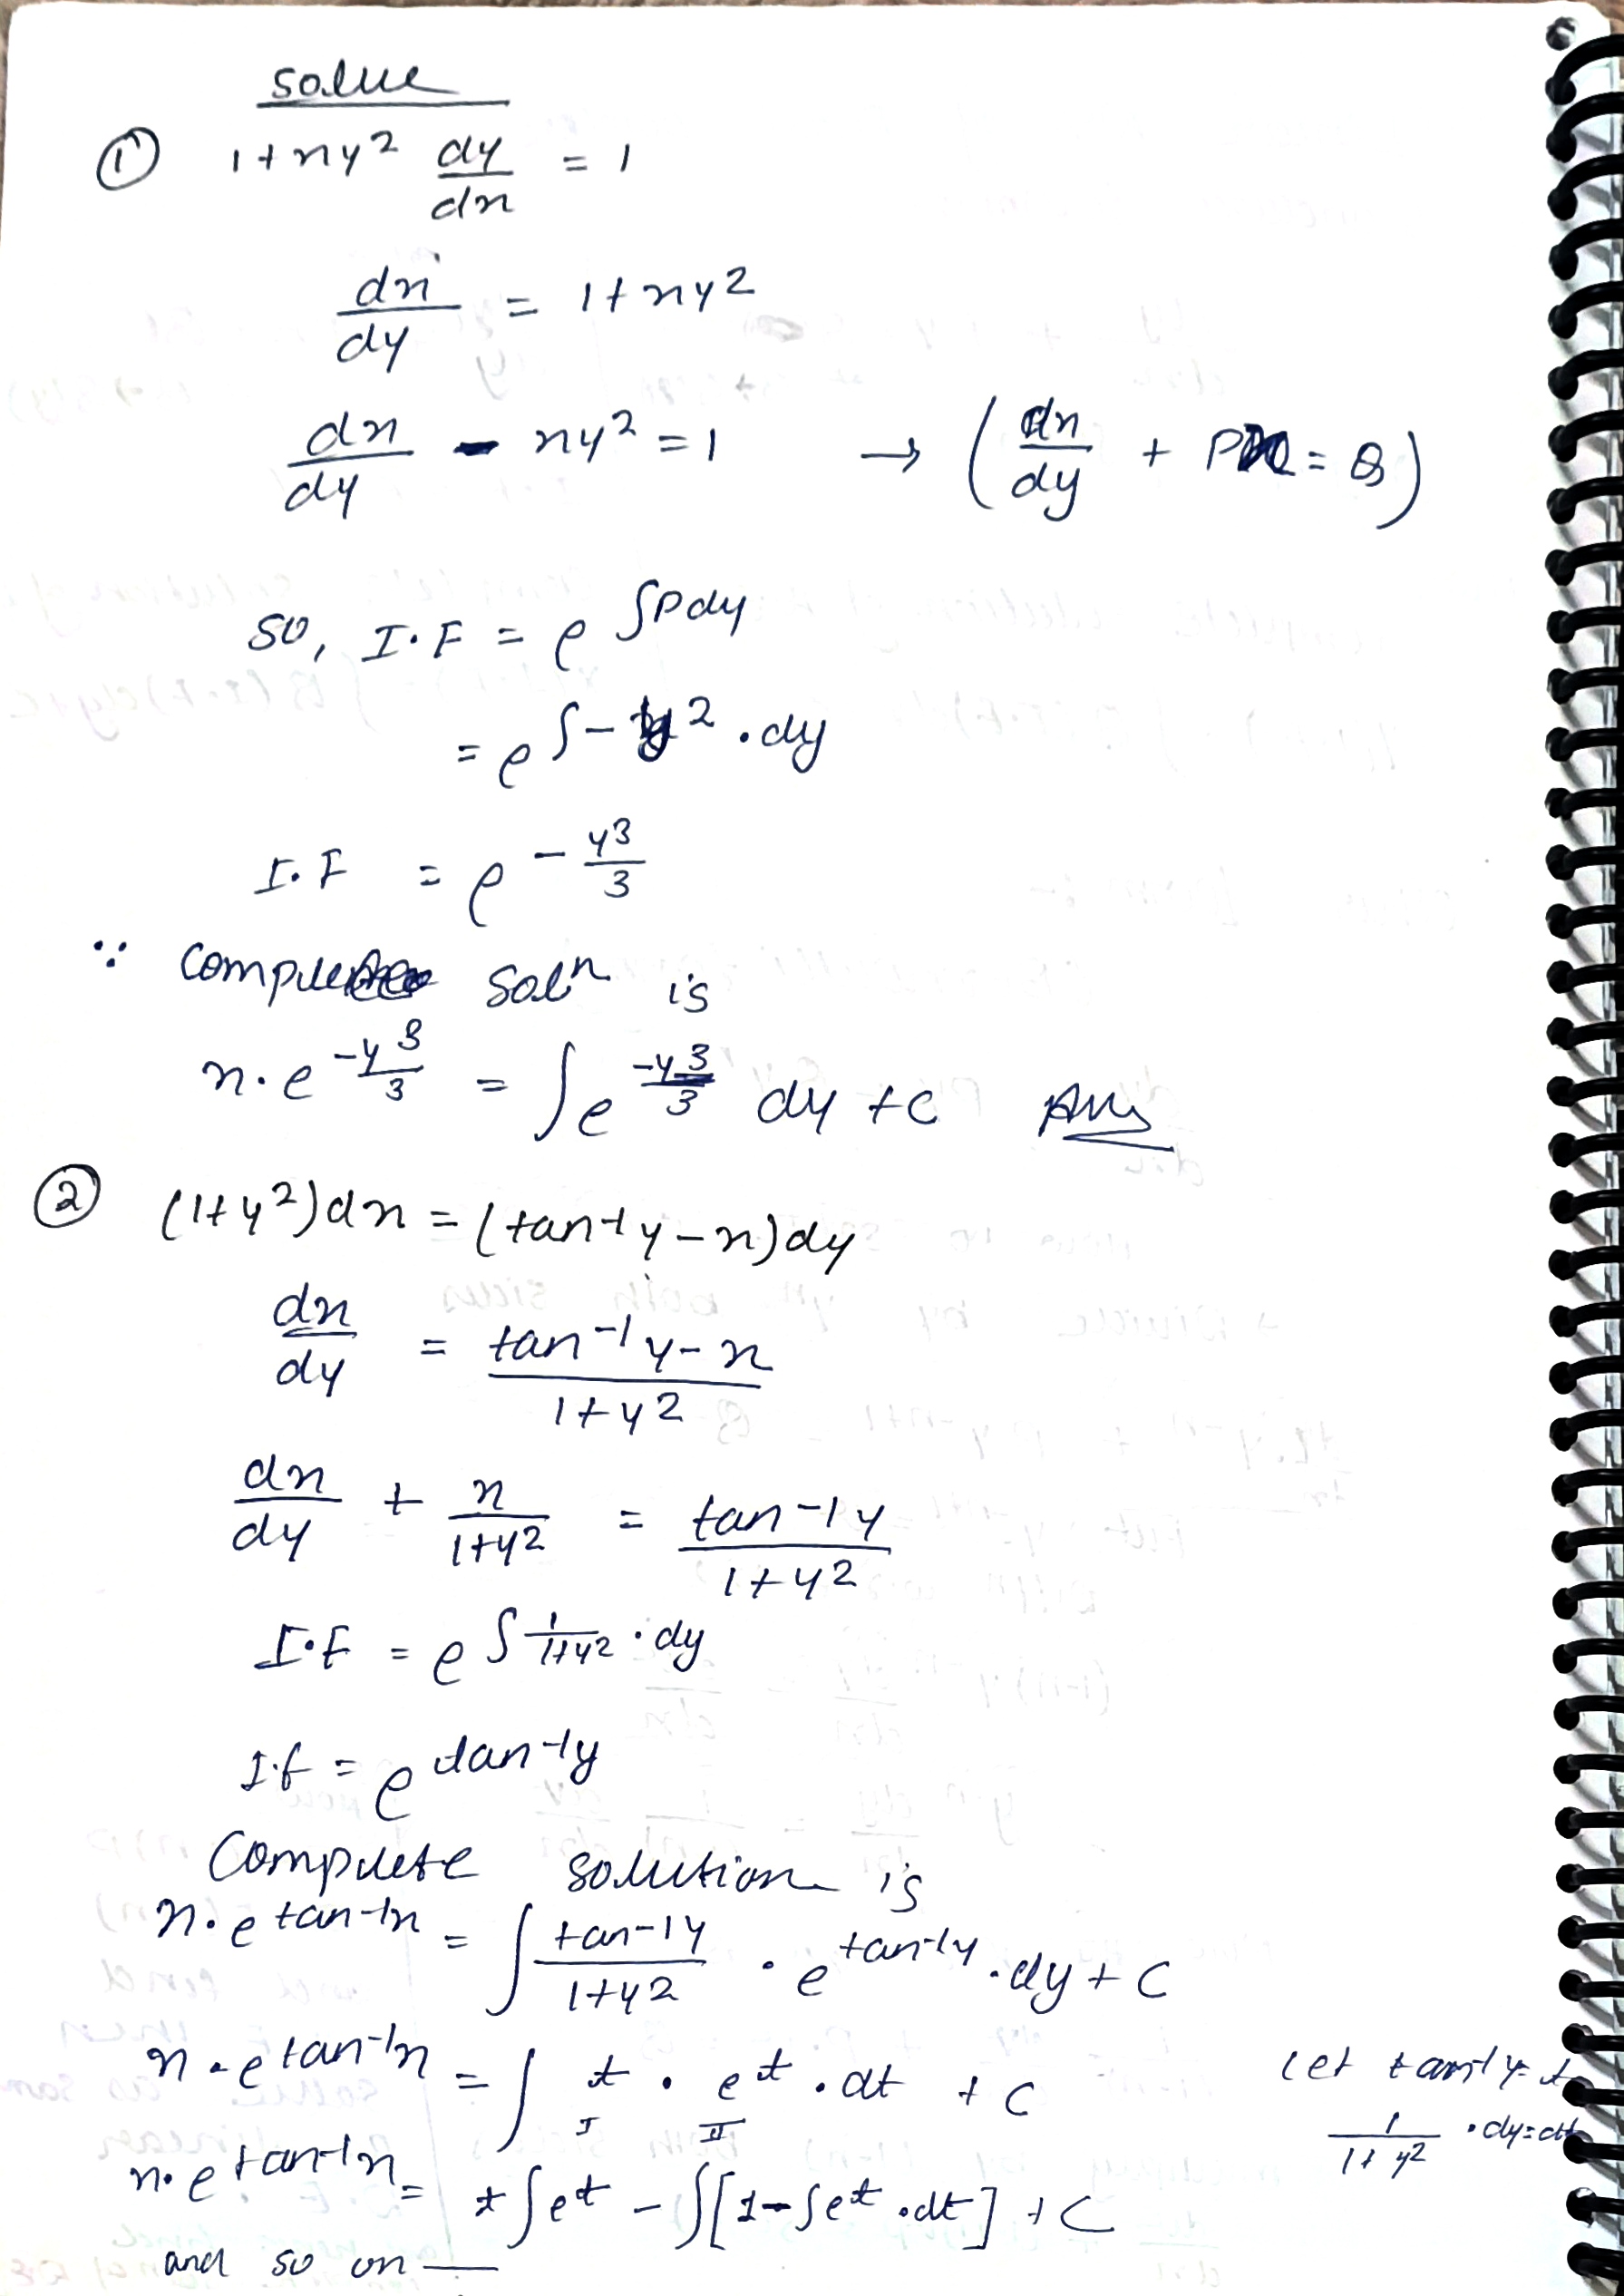 solve
① 1+xy² dy/dx = 1
dx/dy = 1+xy²
dx/dy - xy² = 1 → (dx/dy + Px = Q)
so, I.F = e^∫Pdy
= e^∫-y².dy
I.F = e^-y³/3
∵ complete solⁿ is
x.e^-y³/3 = ∫e^-y³/3 dy +c Ans
② (1+y²)dx = (tan-1y-x)dy
dx/dy = tan-1y-x/1+y²
dx/dy + x/1+y² = tan-1y/1+y²
I.F = e^∫1/1+y².dy
I.f = e^tan-1y
Complete solution is
x.e^tan-1x = ∫tan-1y/1+y² . e^tan-1y.dy + C
x.e^tan-1x = ∫t . e^t.dt + C
I II
let tan-1y=t
1/1+y² .dy=dt
x.e^tan-1x = t∫e^t - ∫[1-∫e^t.dt] + C
and so on —